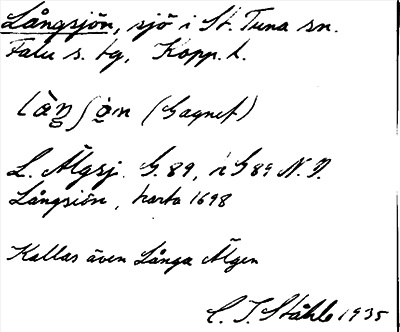 Långsjön, sjö i St. Tuna sn.
Falu s. tg, Kopp. l.
(Gagnef)
L. Älgsj. G. 89, i G 89 N. D.
Långsiön, karta 1698
Kallas även Långa Älgen
C. I. Ståhle 1935